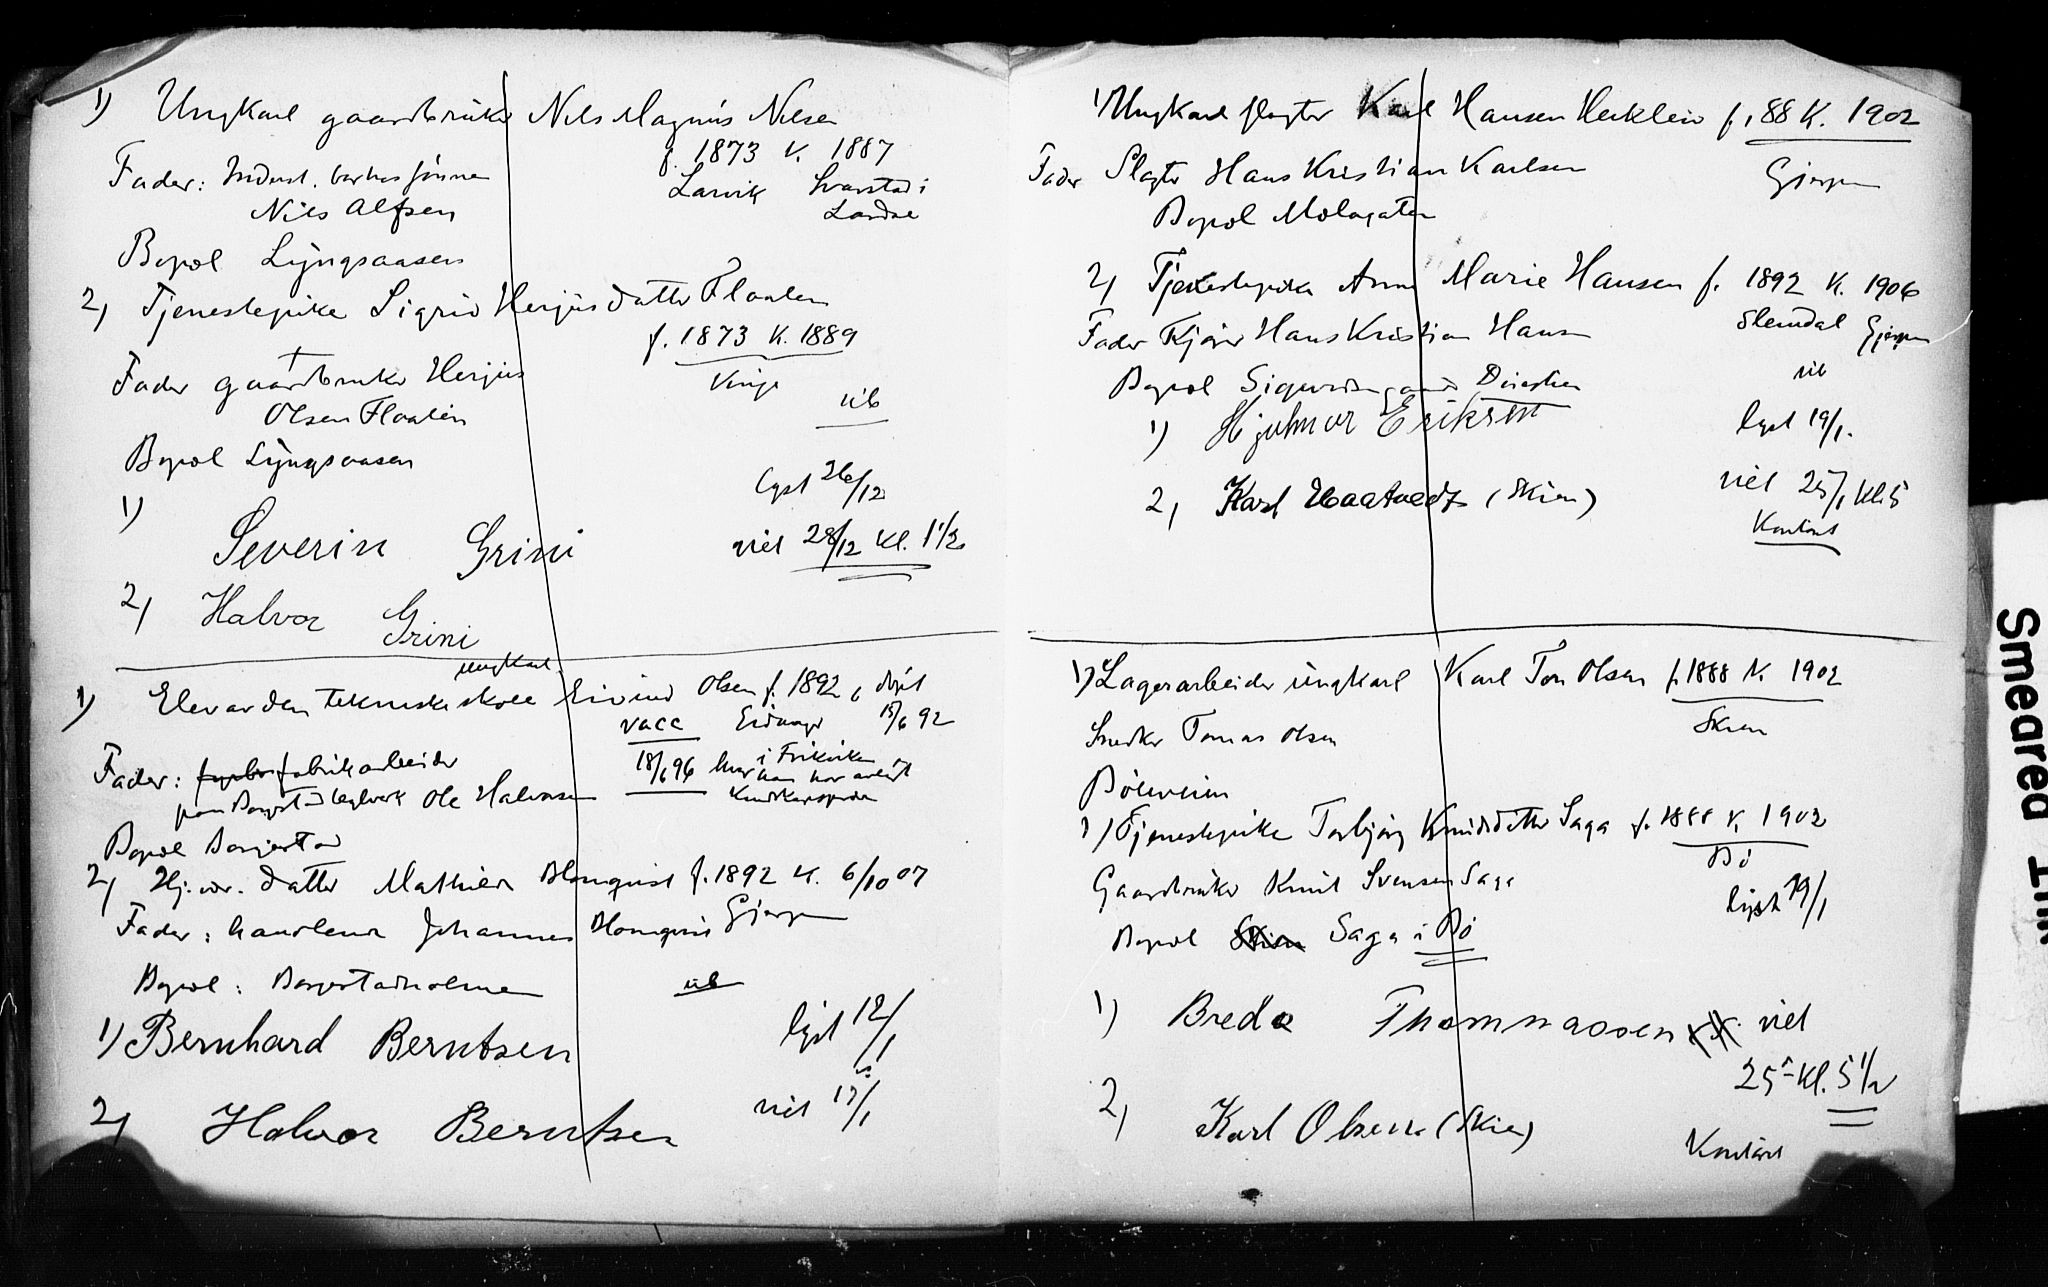 1) Ungkarl gaardbruker Nils Magnus Nilsen
f. 1873 K. 1887
Larvik Svarstad i
Lardal
Fader:
Nils Alfsen
Bopæl Lyngaasen
2) Tjenestepike Sigrid Herjusdatter Flaaten
f. 1873 K. 1889
Vinje
Fader gaardbruker Herjus
Olsen Flaaten
vib
Bopæl Lyngaasen
lyst 26/12
1) Severin Grini
viet 28/12 Kl. 1 1/2
2) Halvor Grini
ungkarl
1) Elev av den tekniske skole Eivind Olsen f. 1892 døpt
vacc Eidanger 15/6 92
Fader: fabrikarbeider
18/6 96 hvor han har
paa Borgestad teglverk Ole Halvorsen
Bopæl Borgestad
2) Hj. vær. datter Mathilde Blomquist f. 1892 K. 6/10 07
Fader: handlende Johannes Blomquist Gjerpen
Bopæl: Borgestadholmen
vib
lyst 12/1
1) Bernhard Berntsen
viet 17/1
2) Halvor Berntsen
1) Ungkarl slagter Karl Hansen Herklein f. 88 K. 1902
Gjerpen
Fader Slagter Hans Kristian Karlsen
Bopæl Mælagaten
2) Tjenestepike Anna Marie Hansen f. 1892 K. 1906
Slemdal Gjerpen
Fader Kjører Hans Kristian Hansen
vib
Bopæl
1) Hjalmar Eriksen
lyst 19/1.
2) Karl Haatvedt (Skien)
viet 25/1 Kl. 5
Kontant
1) Lagerarbeider ungkarl Karl Tom Olsen f. 1888 K. 1902
Skien
Snedker Tomas Olsen
Bøleveien
2) Tjenestepike Torbjørg Knudsdatter Saga f. 1888 K. 1902
Bø
Gaardbruker Knut Svensen Saga
lyst 19/1
Bopæl Skien Saga i Bø
1) Breda Thommassen viet
25/1 Kl. 5 1/2
2) Karl Olsen (Skien)
Kontant
Smeared Ink